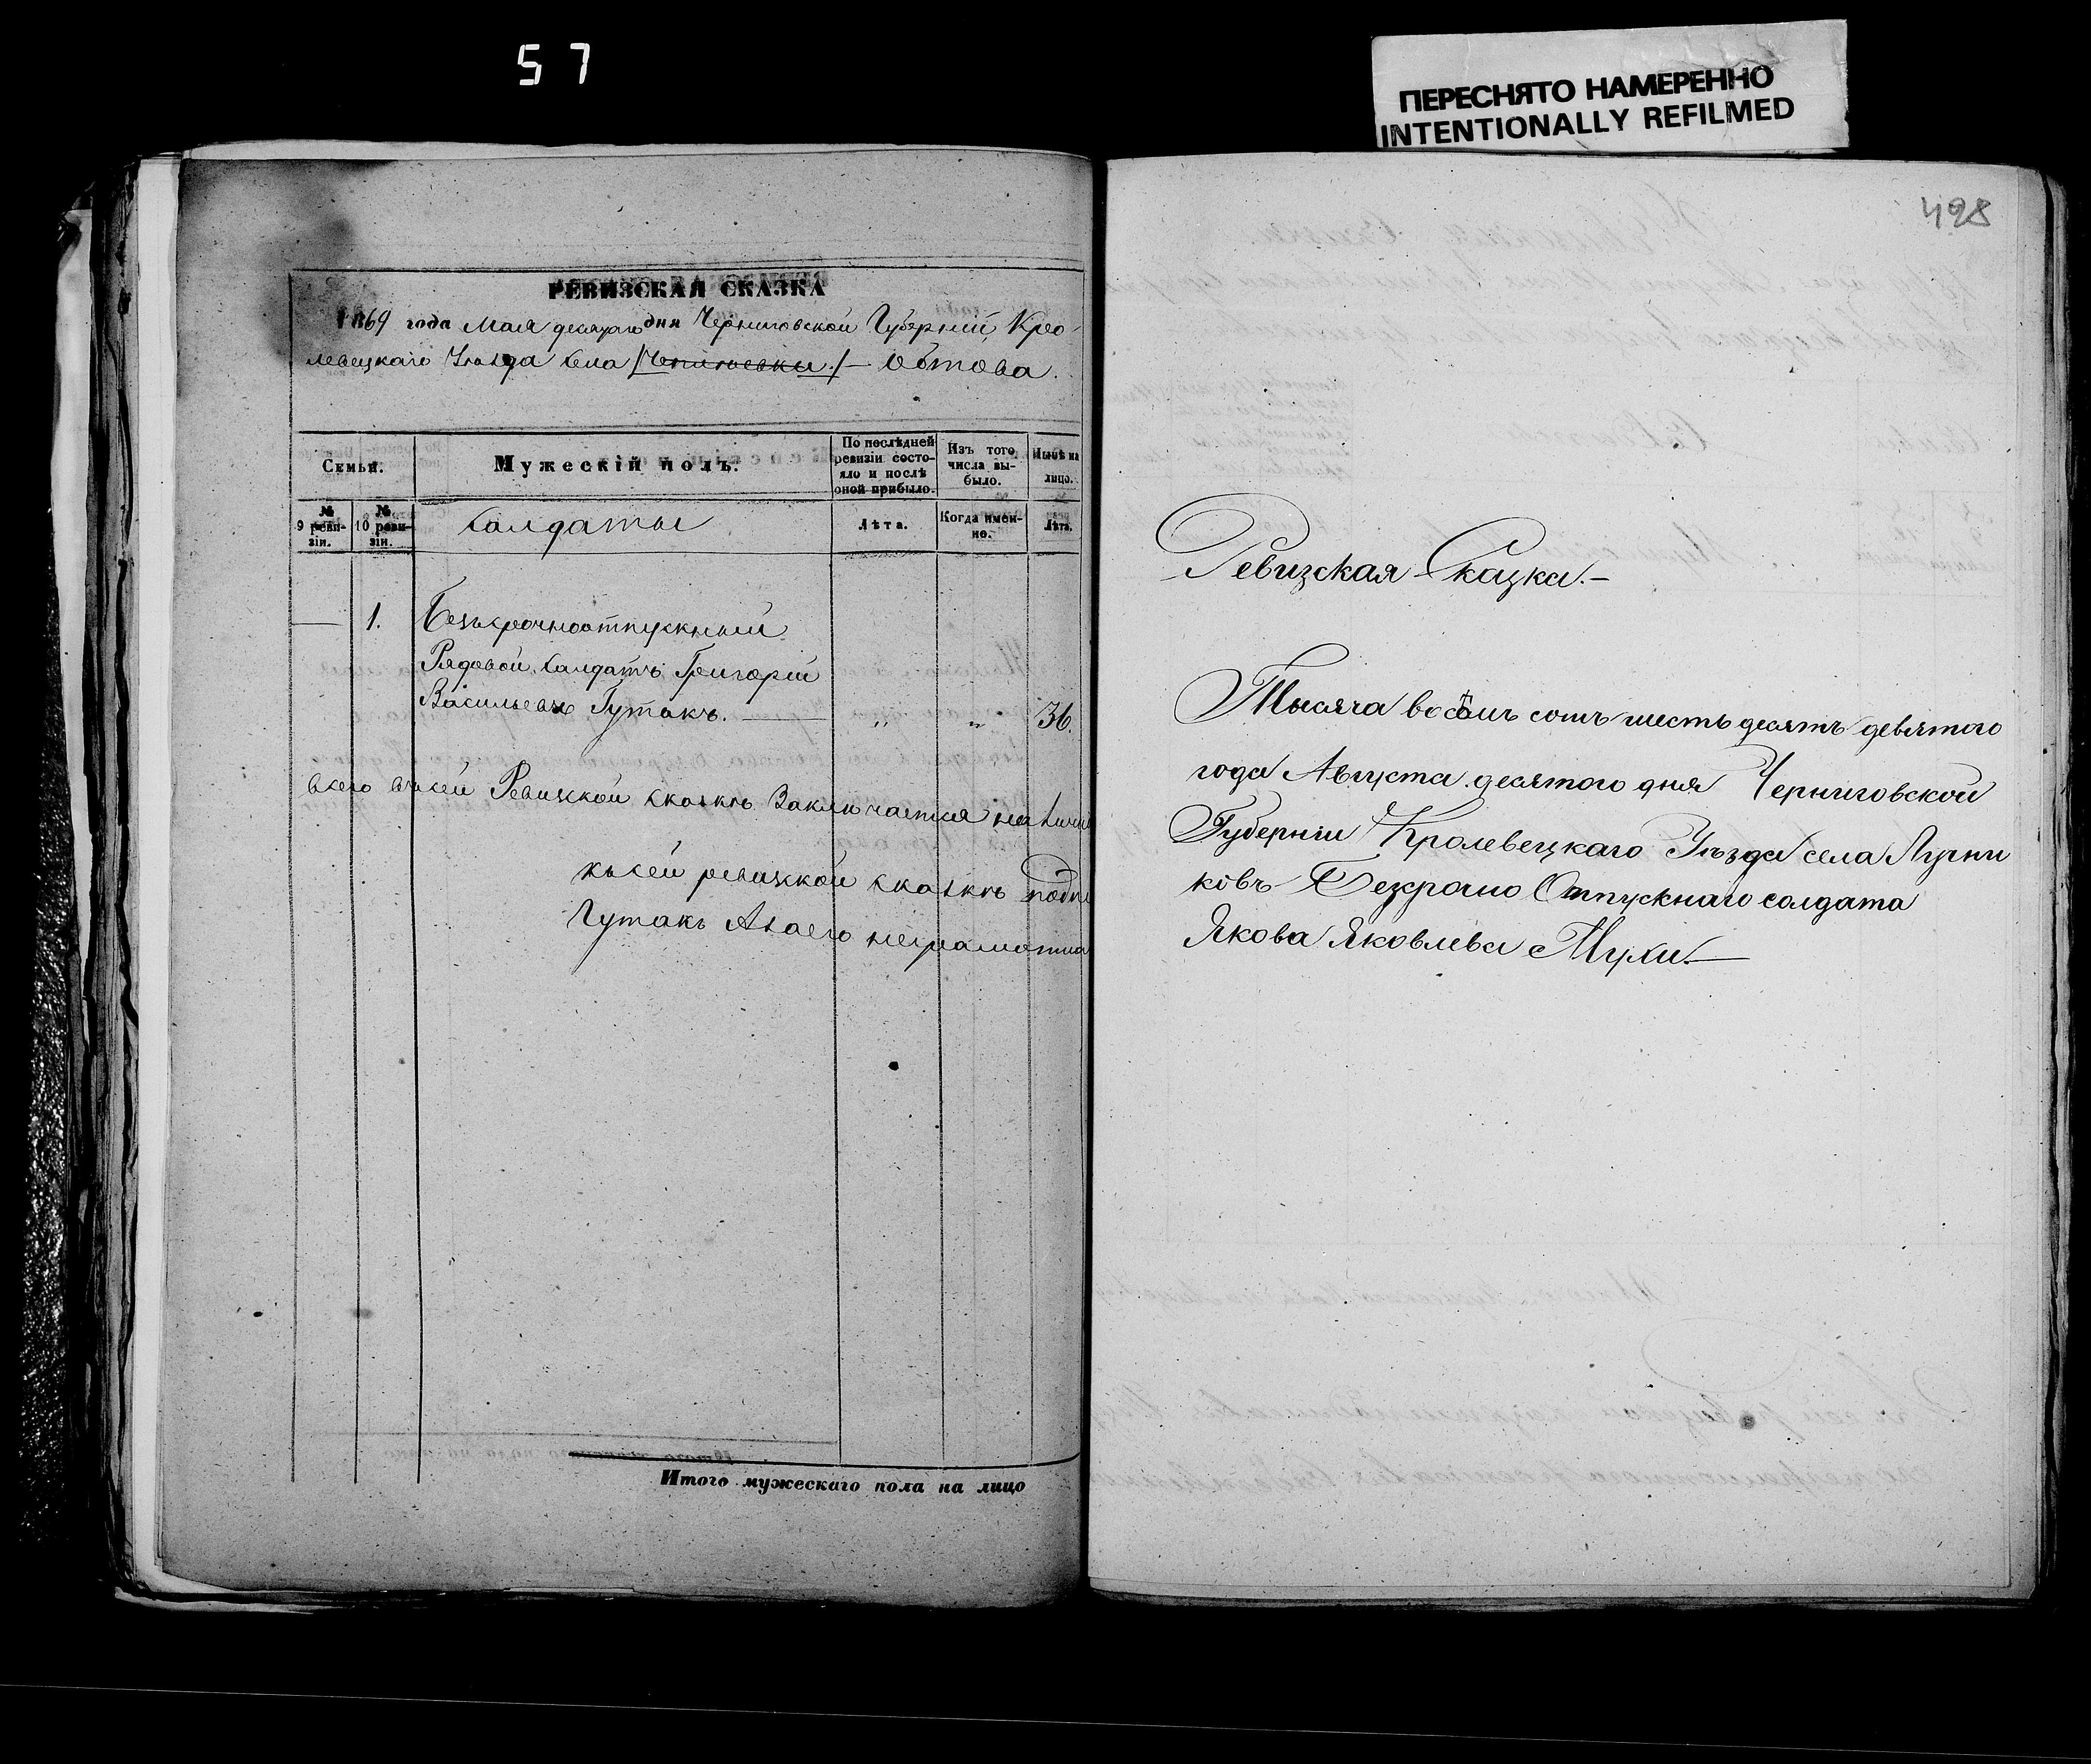 57
ПЕРЕСНЯТО НАМЕРЕННО
INTENTIONALLY REFILMED
РЕВИЗСКАЯ СКАЗКА
1869 года Мая десятаго дня Черниговской Губерніи, Кро-
левецкаго Уѣзда села Обтова.
Семьи.
Мужескій полъ.
По послѣдней ревизіи состояло и послѣ оной прибыло.
Изъ того числа выбыло.
Нынѣ на лицо.
№ 9 ревизіи.
№ 10 ревизіи.
Салдаты
Лѣта.
Когда именно.
Лѣта.
1. Безсрочноотпускный
Рядовой Салдатъ Григорій
Васильевъ Гутакъ. — „ „ 36.
всего въ сей Ревизкой сказкѣ Заключается на Лицо
къ сей ревизкой сказкѣ
Гутакъ Азаего
Итого мужескаго пола на лицо
498
Ревизская Сказка.—
Тысяча восемъ сотъ шесть десятъ девятого
года Августа десятого дня Черниговской
Губерніи Кролевецкаго Уѣзда села Лучни
ковъ Безрочно Отпускнаго солдата
Якова Яковлева Мухи.—